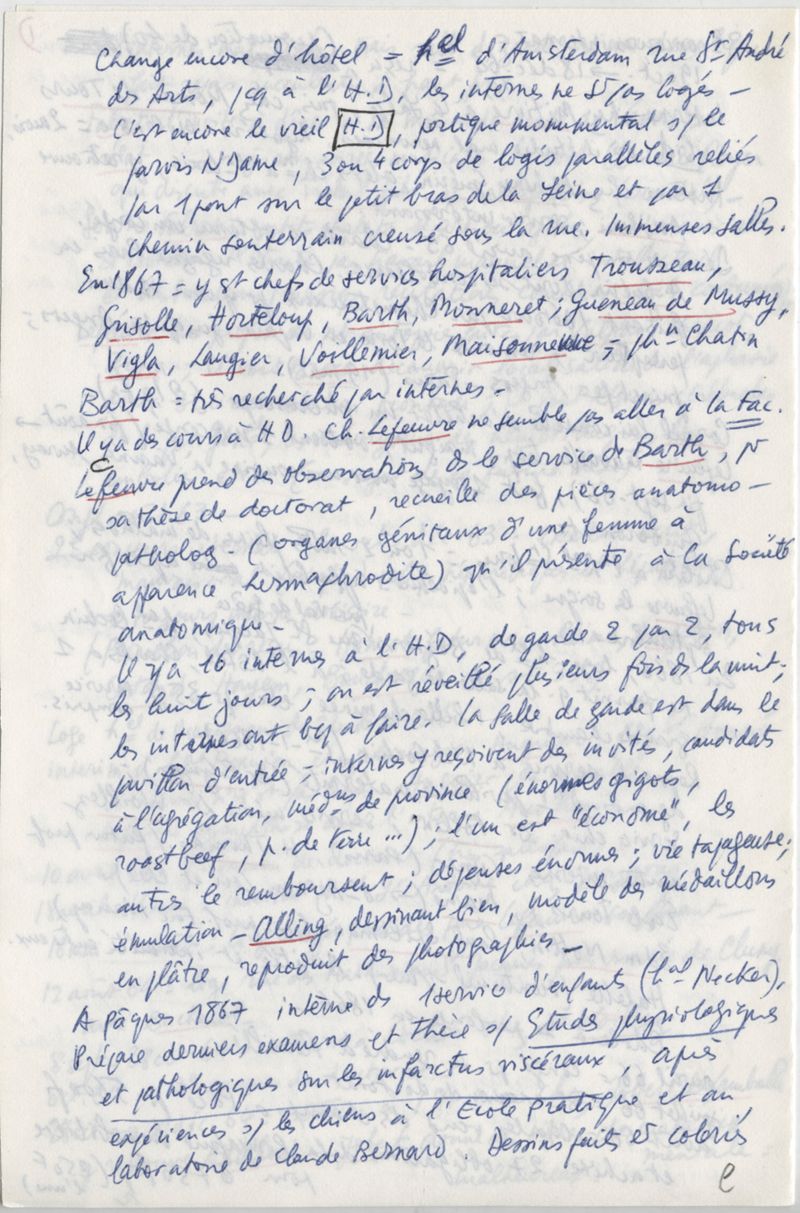 Change encore d'hôtel = hel d'Amsterdam rue St André
des Arts, pcq à l'H.D. les internes ne st pas logés –
C'est encore le vieil H.D, portique monumental s/ le
parvis N Dame, 3 ou 4 corps de logis parallèles reliés
par 1 pont sur le petit bras de la Seine et par 1
chemin souterrain creusé sous la rue. Immenses salles.
En 1867 = y st chefs de services hospitaliers Trousseau,
Grisolle, Horteloup, Barth, Monneret ; Gueneau de Mussy,
Vigla, Laugier, Voillemier, Maisonneuve ; phn Chatin
Barth = très recherché par internes –
Il y a des cours à H D. Ch. Lefeuvre ne semble pas aller à la Fac.
Lefeuvre prend des observations ds le service de Barth, pr
sa thèse de doctorat, recueille des pièces anatomo –
patholog – (organes génitaux d'une femme à
apparence hermaphrodite) qu'il présente à la Société
anatomique –
Il y a 16 internes à l'H.D, de garde 2 par 2, tous
les huit jours ; on est réveillé plusieurs fois ds la nuit ;
les internes ont bcp à faire. La salle de garde est dans le
pavillon d'entrée ; internes y reçoivent des invités, candidats
à l'agrégation, médns de province (énormes gigots,
roastbeef, p. de terre ...) ; l'un est "économe", les
autres le remboursent ; dépenses énormes ; vie tapageuse ;
émulation – Alling, dessinant bien, modèle des médaillons
en plâtre, reproduit des photographies –
A pâques 1867 interne ds 1 service d'enfants (hal Necker).
Prépare derniers examens et thèse s/ Etudes physiologiques
et pathologiques sur les infarctus viscéraux, après
expériences s/ les chiens à l'Ecole pratique et au
laboratoire de Claude Bernard. Dessins faits et coloriés